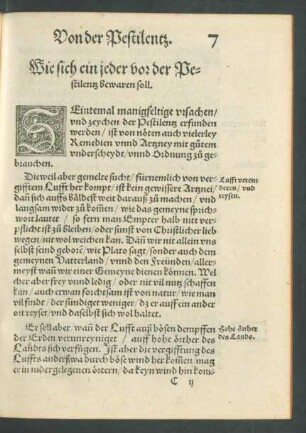 Von der Pestilentz. 7
Wie sich ein jeder vor der Pe-
stilentz bewaren soll.
SEintemal manigfeltige vrsachen/
vnd zeychen der Pestilentz erfunden
werden / ist von nöten auch vielerley
Remedien vnnd Artzney mit gůtem
vnderscheydt / vnnd Ordnung zů ge-
brauchen.
Dieweil aber gemelte sucht / fürnemlich von ver-
gifftem Lufft her kompt / ist kein gewissere Artznei /
dañ sich auffs bäldest weit darauß zů machen / vnd
langsam wider zů kom̃en / wie das gemeyne sprich-
wort lautet / so fern man Empter halb nit ver-
pflicht ist zů bleiben / oder sunst von Christlicher lieb
wegen nit wol weichen kan. Dañ wir nit allein vns
selbst seind geborē / wie Plato sagt / sonder auch dem
gemeynen Vatterland / vnnd den Freünden / aller-
meyst wañ wir einer Gemeyne dienen können. Wel
cher aber frey vnnd ledig / oder nit vil nutz schaffen
kan / auch etwan forchtsam ist von natur / wie man
vil findt / der sündiget weniger / dz er auff ein ander
ort reyset / vnd daselbst sich wol haltet.
Lufft veren-
deren / vnd
reysen.
Er soll aber / wañ der Lufft auß bösen dempffen
der Erden verunreyniget / auff hohe örther des
Landts sich verfügen. Ist aber die vergifftung des
Luffts anderßwa durch böse wind her kom̃en / mag
er in nidergelegenen öttern / da keyn wind hin kom-
Hohe örther
des Lands.
C ij